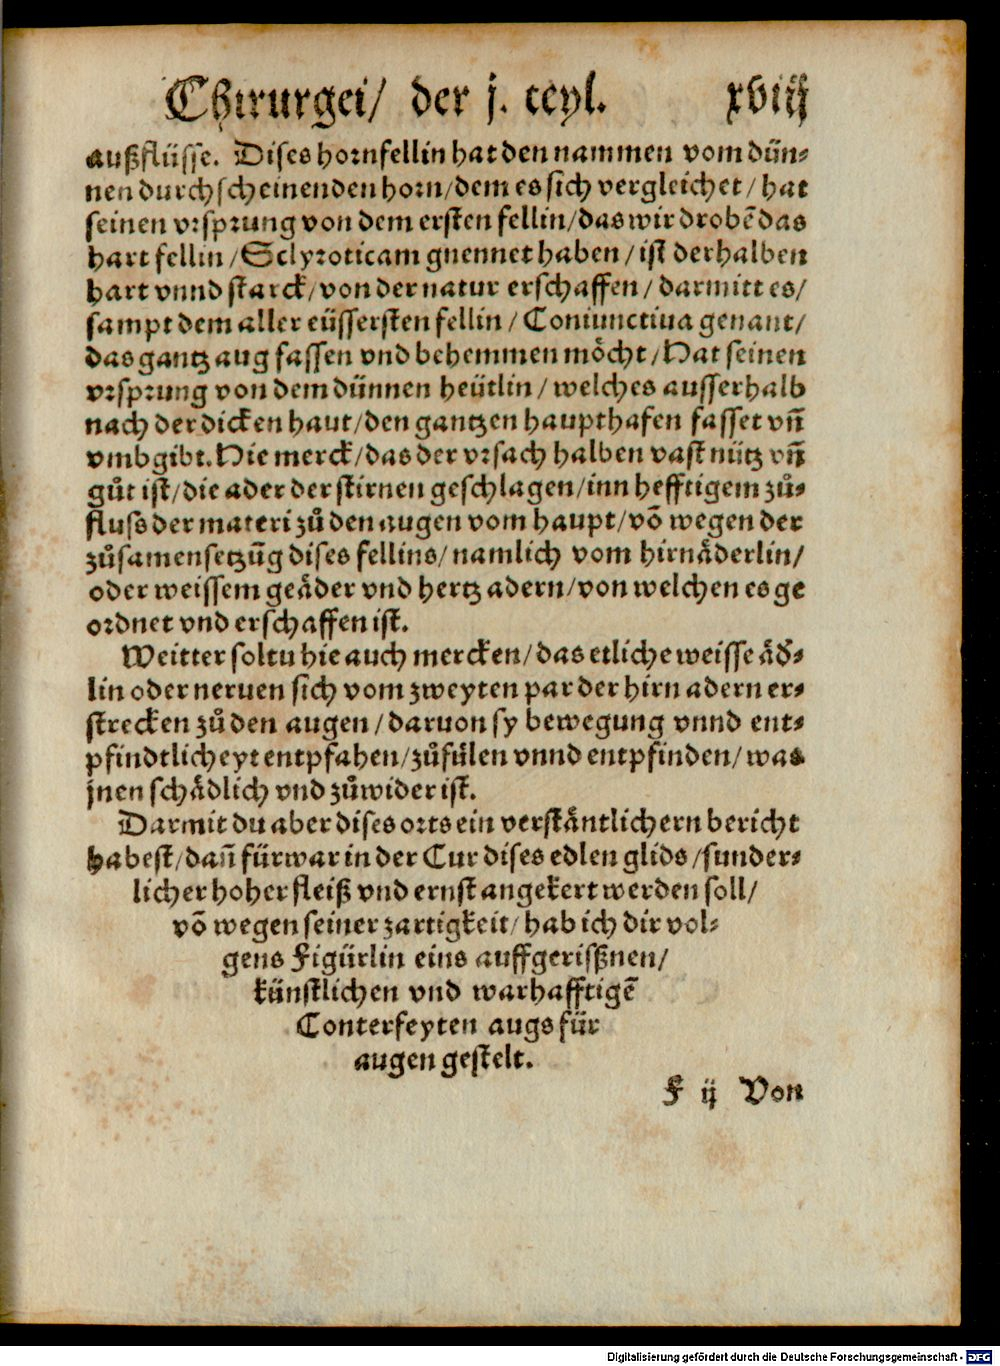 Chirurgei/ der j. teyl. xviij
außflüsse. Dises hornfellin hat den nammen vom dün-
nen durchscheinenden horn/dem es sich vergleichet/hat
seinen vrsprung von dem ersten fellin/das wir drobē das
hart fellin/Sclyroticam gnennet haben/ist derhalben
hart vnnd starck/von der natur erschaffen/darmitt es/
sampt dem aller eüssersten fellin/Coniunctiua genant/
das gantz aug fassen vnd behemmen möcht/Hat seinen
vrsprung von dem dünnen heütlin/welches ausserhalb
nach der dicken haut/den gantzen haupthafen fasset vn̄
vmbgibt. Hie merck/das der vrsach halben vast nütz vn̄
gůt ist/die ader der stirnen geschlagen/inn hefftigem zů-
fluss der materi zů den augen vom haupt/vō wegen der
zůsamensetzūg dises fellins/namlich vom hirnäderlin/
oder weissem geäder vnd hertz adern/von welchen es ge
ordnet vnd erschaffen ist.
Weitter soltu hie auch mercken/das etliche weisse äd̄-
lin oder neruen sich vom zweyten par der hirn adern er-
strecken zů den augen/daruon sy bewegung vnnd ent-
pfindtlicheyt entpfahen/zůfülen vnnd entpfinden/was
jnen schädlich vnd zůwider ist.
Darmit du aber dises orts ein verstäntlichern bericht
habest/dan̄ fürwar in der Cur dises edlen glids/sunder-
licher hoher fleiß vnd ernst angekert werden soll/
vō wegen seiner zartigkeit/hab ich dir vol-
gens Figürlin eins auffgerißnen/
künstlichen vnd warhafftigē
Conterfeyten augs für
augen gestelt.
F ij Von
Digitalisierung gefördert durch die Deutsche Forschungsgemeinschaft - DFG